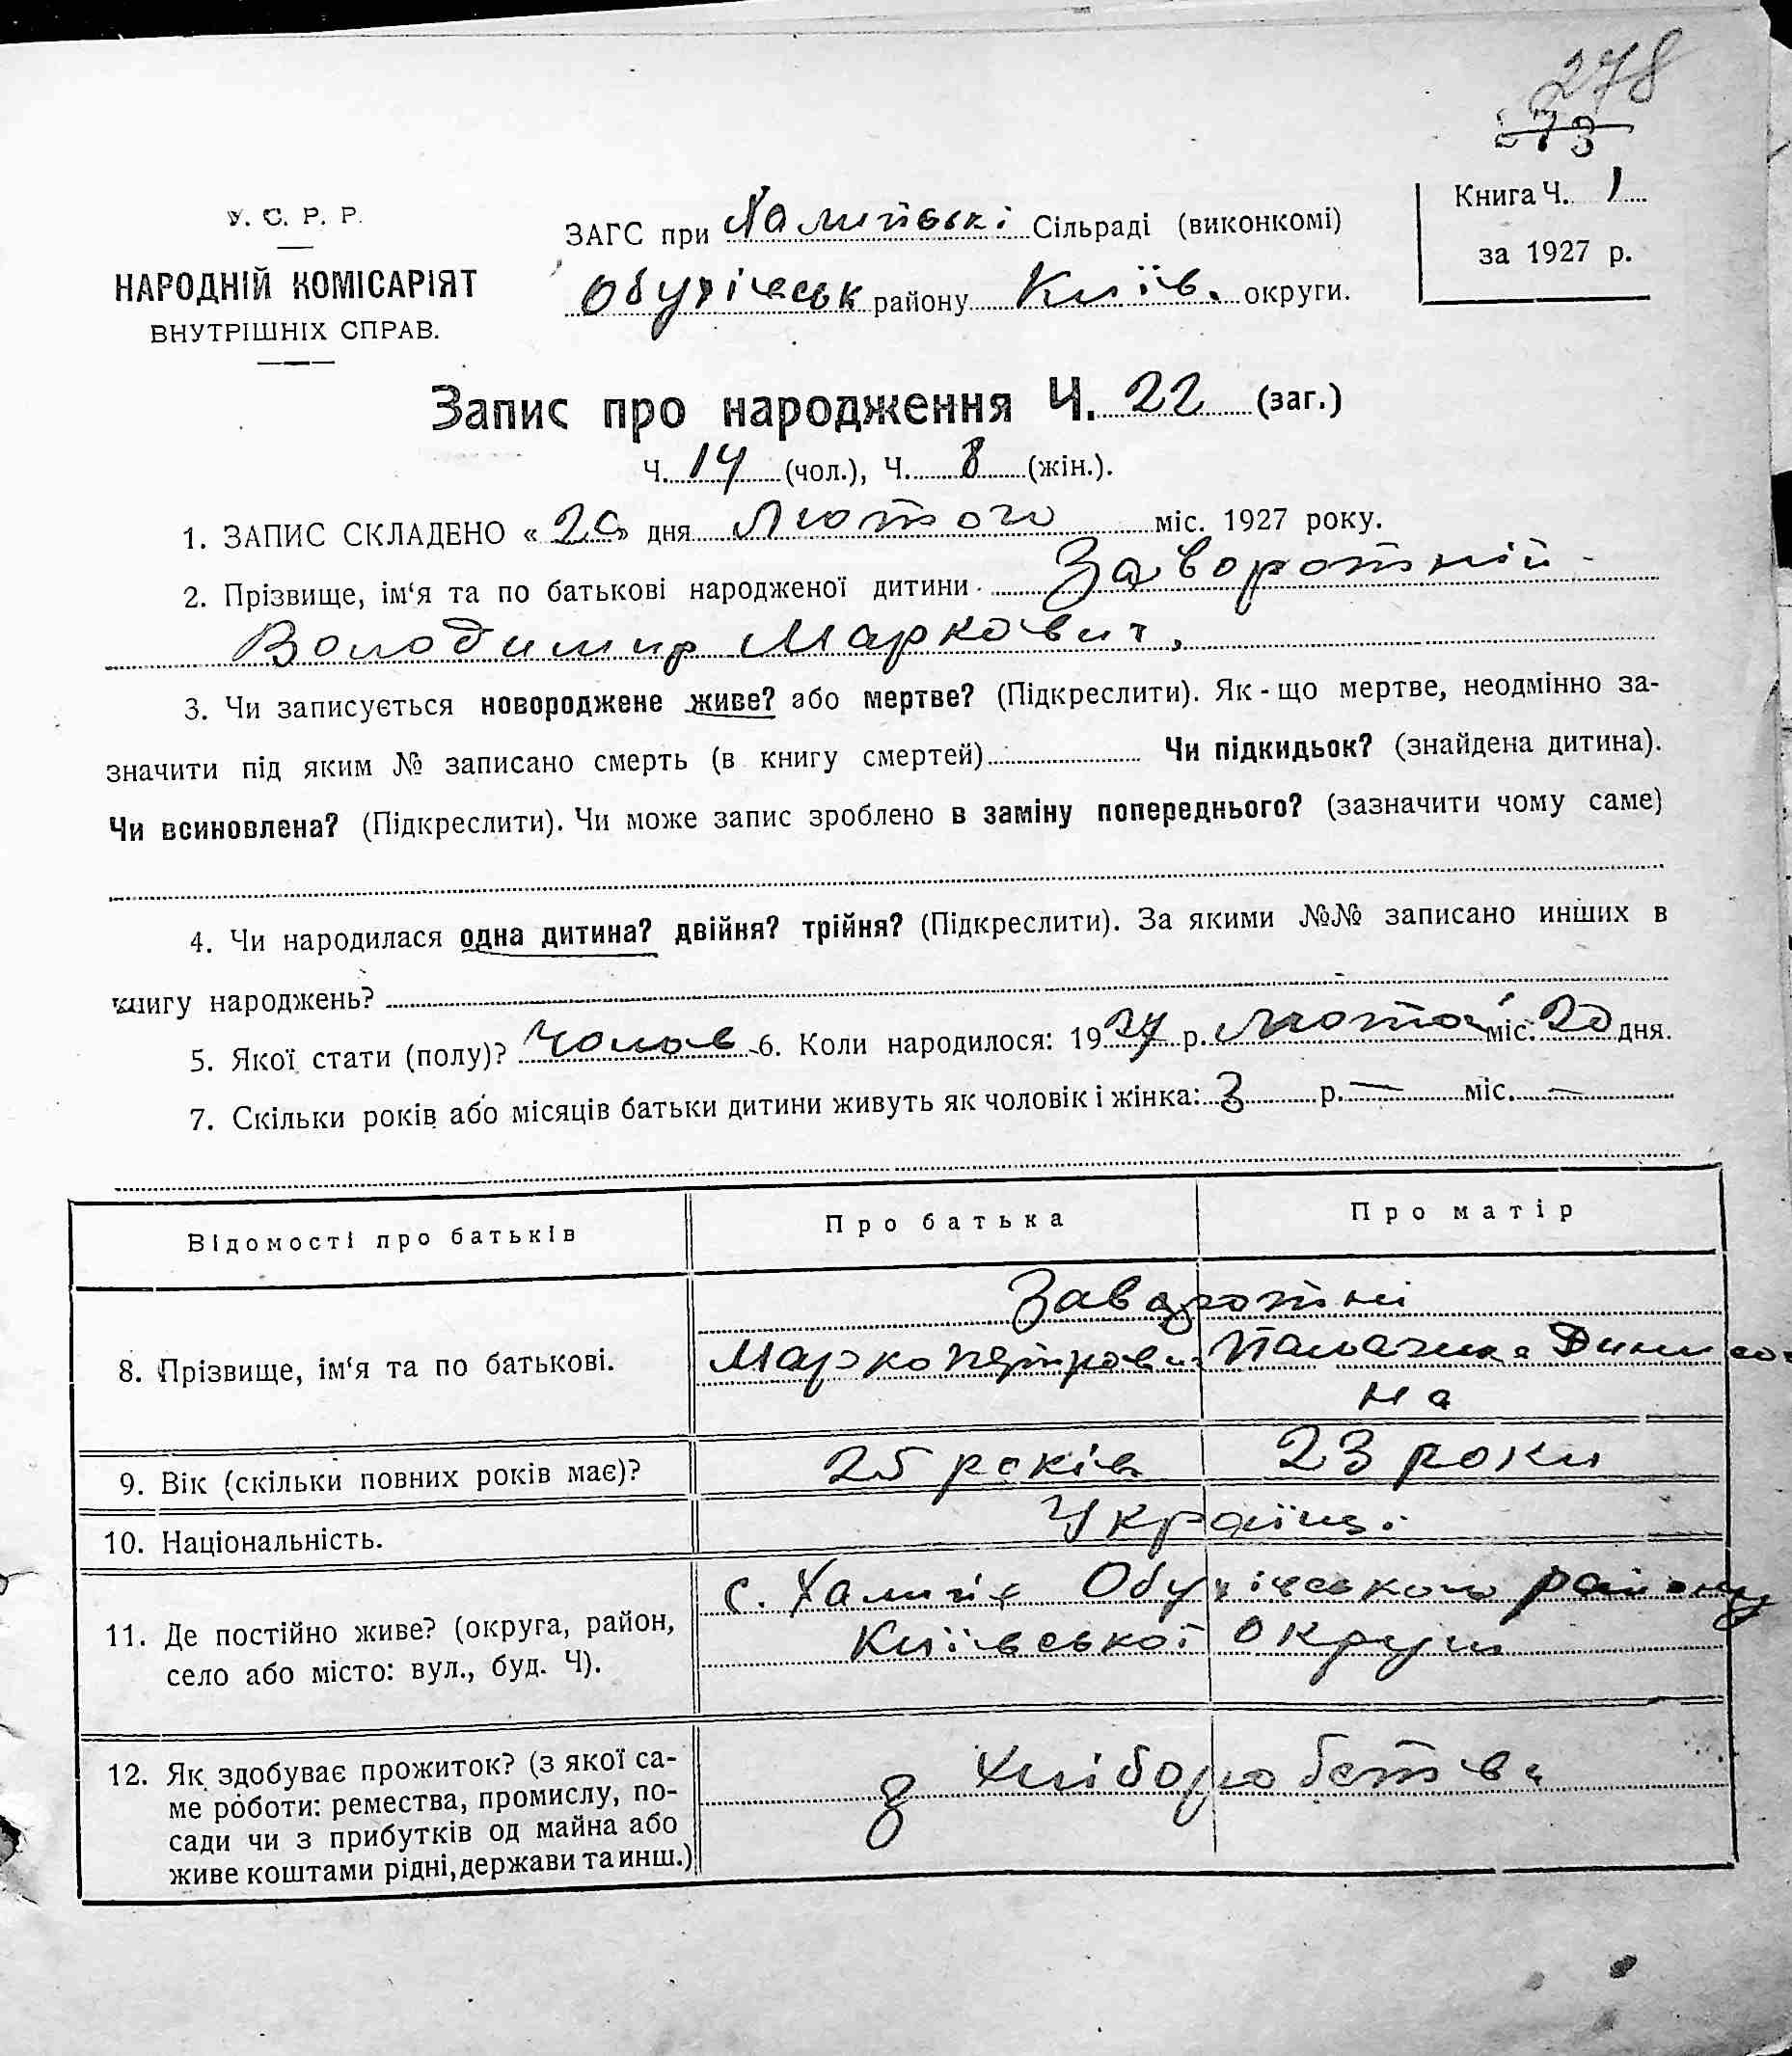 278
273
У. С. Р. Р.
НАРОДНІЙ КОМІСАРІЯТ
ВНУТРІШНІХ СПРАВ.
ЗАГС при Халипській Сільраді (виконкомі)
Обухівськ району Київ. округи.
Книга Ч. 1
за 1927 р.
Запис про народження Ч. 22 (заг.)
Ч. 14 (чол.), Ч. 8 (жін.).
1. ЗАПИС СКЛАДЕНО « 20 » дня Лютого міс. 1927 року.
2. Прізвище, ім‘я та по батькові народженої дитини Заворотній
Володимир Маркович.
3. Чи записується новороджене живе? або мертве? (Підкреслити). Як-що мертве, неодмінно за-
значити під яким № записано смерть (в книгу смертей) Чи підкидьок? (знайдена дитина).
Чи всиновлена? (Підкреслити). Чи може запис зроблено в заміну попереднього? (зазначити чому саме)
4. Чи народилася одна дитина? двійня? трійня? (Підкреслити). За якими №№ записано инших в
книгу народжень?
5. Якої стати (полу)? Чолов 6. Коли народилося: 1927 р. міс. 20 дня.
7. Скільки років або місяців батьки дитини живуть як чоловік і жінка: 3 р. — міс. —
Відомості про батьків Про батька Про матір
Заворотні
8. Прізвище, ім‘я та по батькові. Марко Петрович
на
9. Вік (скільки повних років має)? 25 років 23 роки
10. Національність. Українці
11. Де постійно живе? (округа, район, с. Обухівського району
село або місто: вул., буд. Ч). Київської округи
12. Як здобуває прожиток? (з якої са-
ме роботи: ремества, промислу, по- з хліборобства
сади чи з прибутків од майна або
живе коштами рідні, держави та инш.)